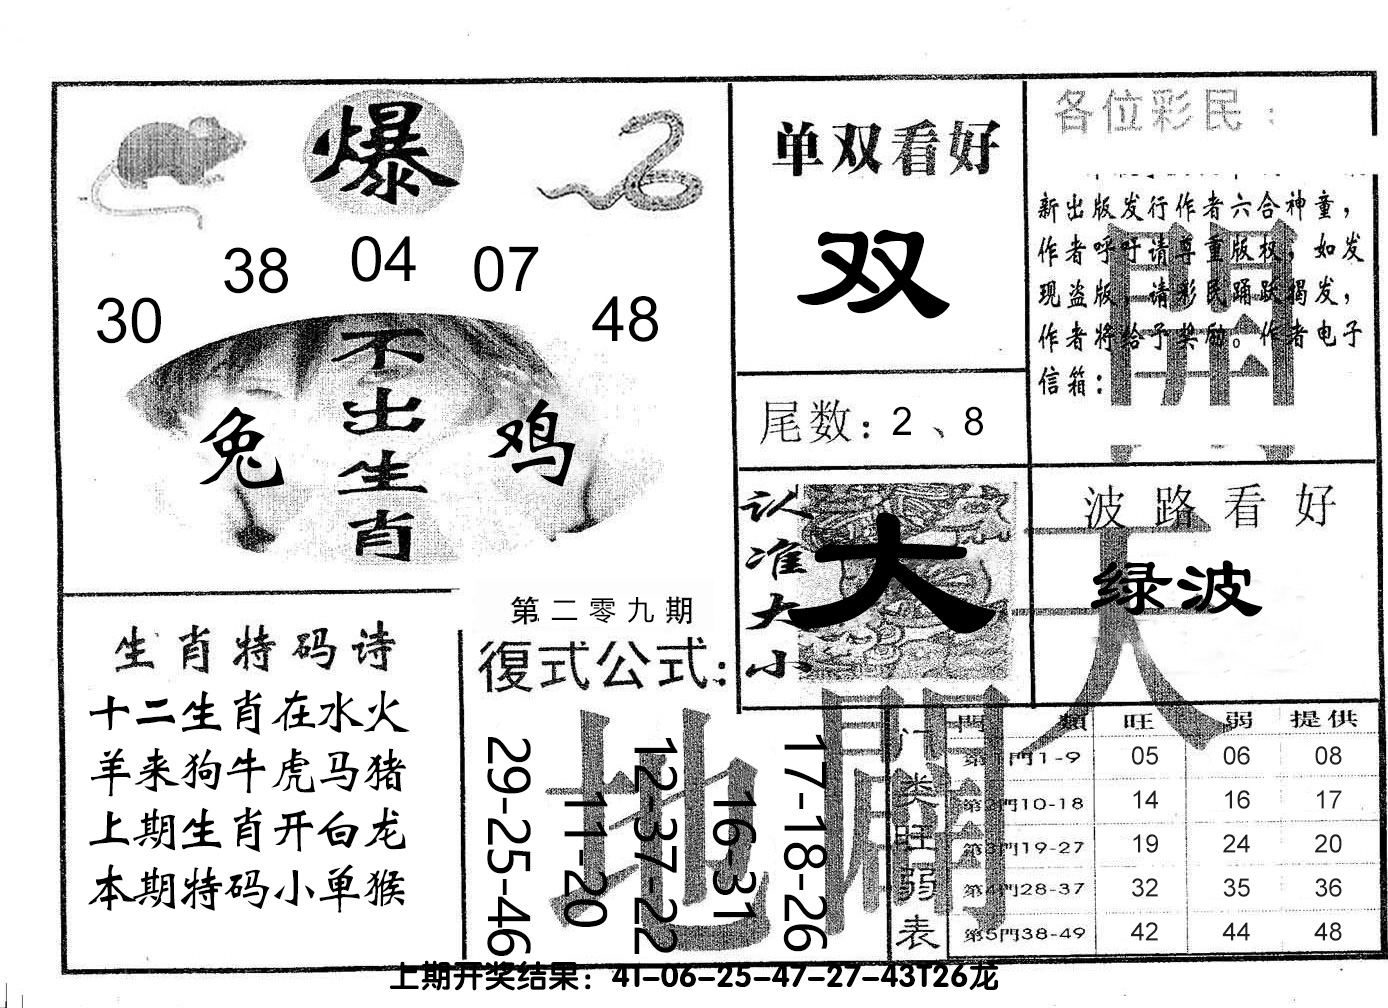 爆
30 38 04 07 48
不出生肖
兔 鸡
单双看好
双
尾数：2、8
各位彩民：
新出版发行作者六合神童，
作者呼吁请尊重版权，如发
现盗版，请彩民踊跃揭发，
作者将给予奖励。作者电子
信箱：
认准大小
大
波路看好
绿波
生肖特码诗
十二生肖在水火
羊来狗牛虎马猪
上期生肖开白龙
本期特码小单猴
第二零九期
復式公式：
29-25-46
11-20
12-37-22
16-31
17-18-26
天
地
開
门类旺弱表
門類 旺 弱 提供
第1門1-9 05 06 08
第2門10-18 14 16 17
第3門19-27 19 24 20
第4門28-37 32 35 36
第5門38-49 42 44 48
上期开奖结果：41-06-25-47-27-43T26龙